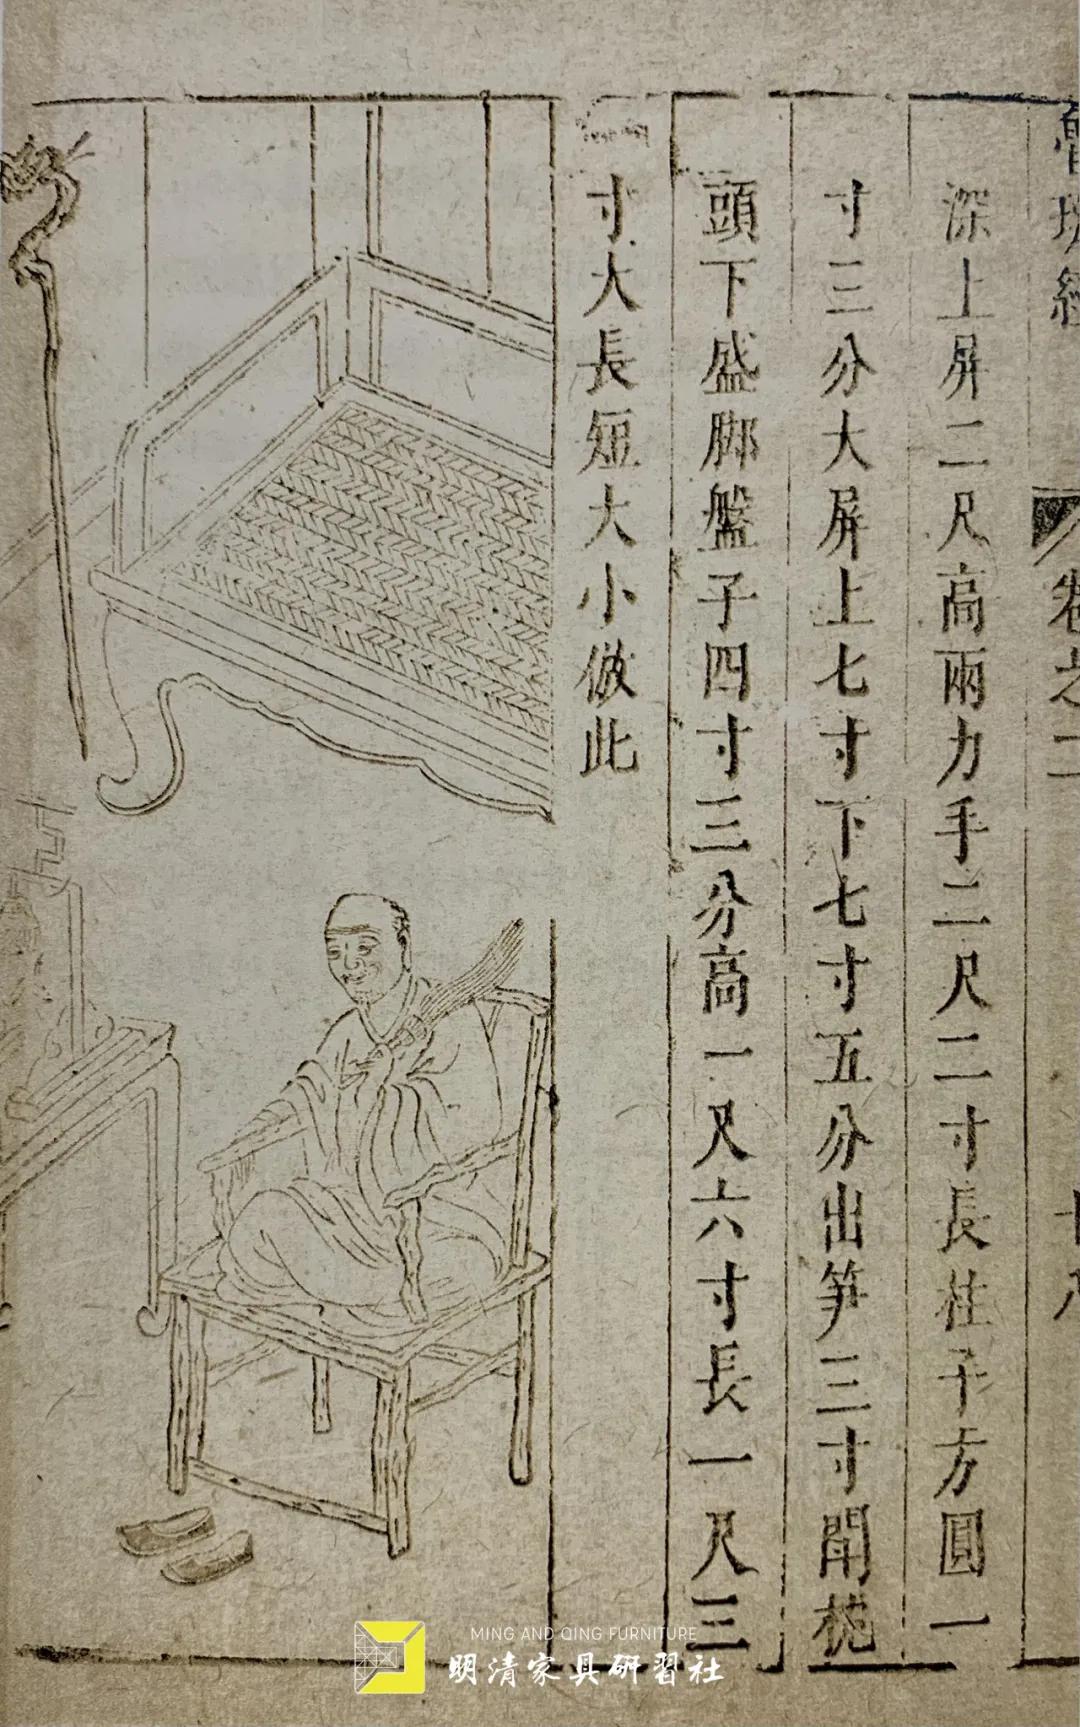 魯班經
卷之二
十八
深上屏二尺高兩力手二尺二寸長柱子方圓一
寸三分大屏上七寸下七寸五分出笋三寸閗枕
頭下盛脚盤子四寸三分高一尺六寸長一尺三
寸大長短大小倣此
MING AND QING FURNITURE
明清家具研習社